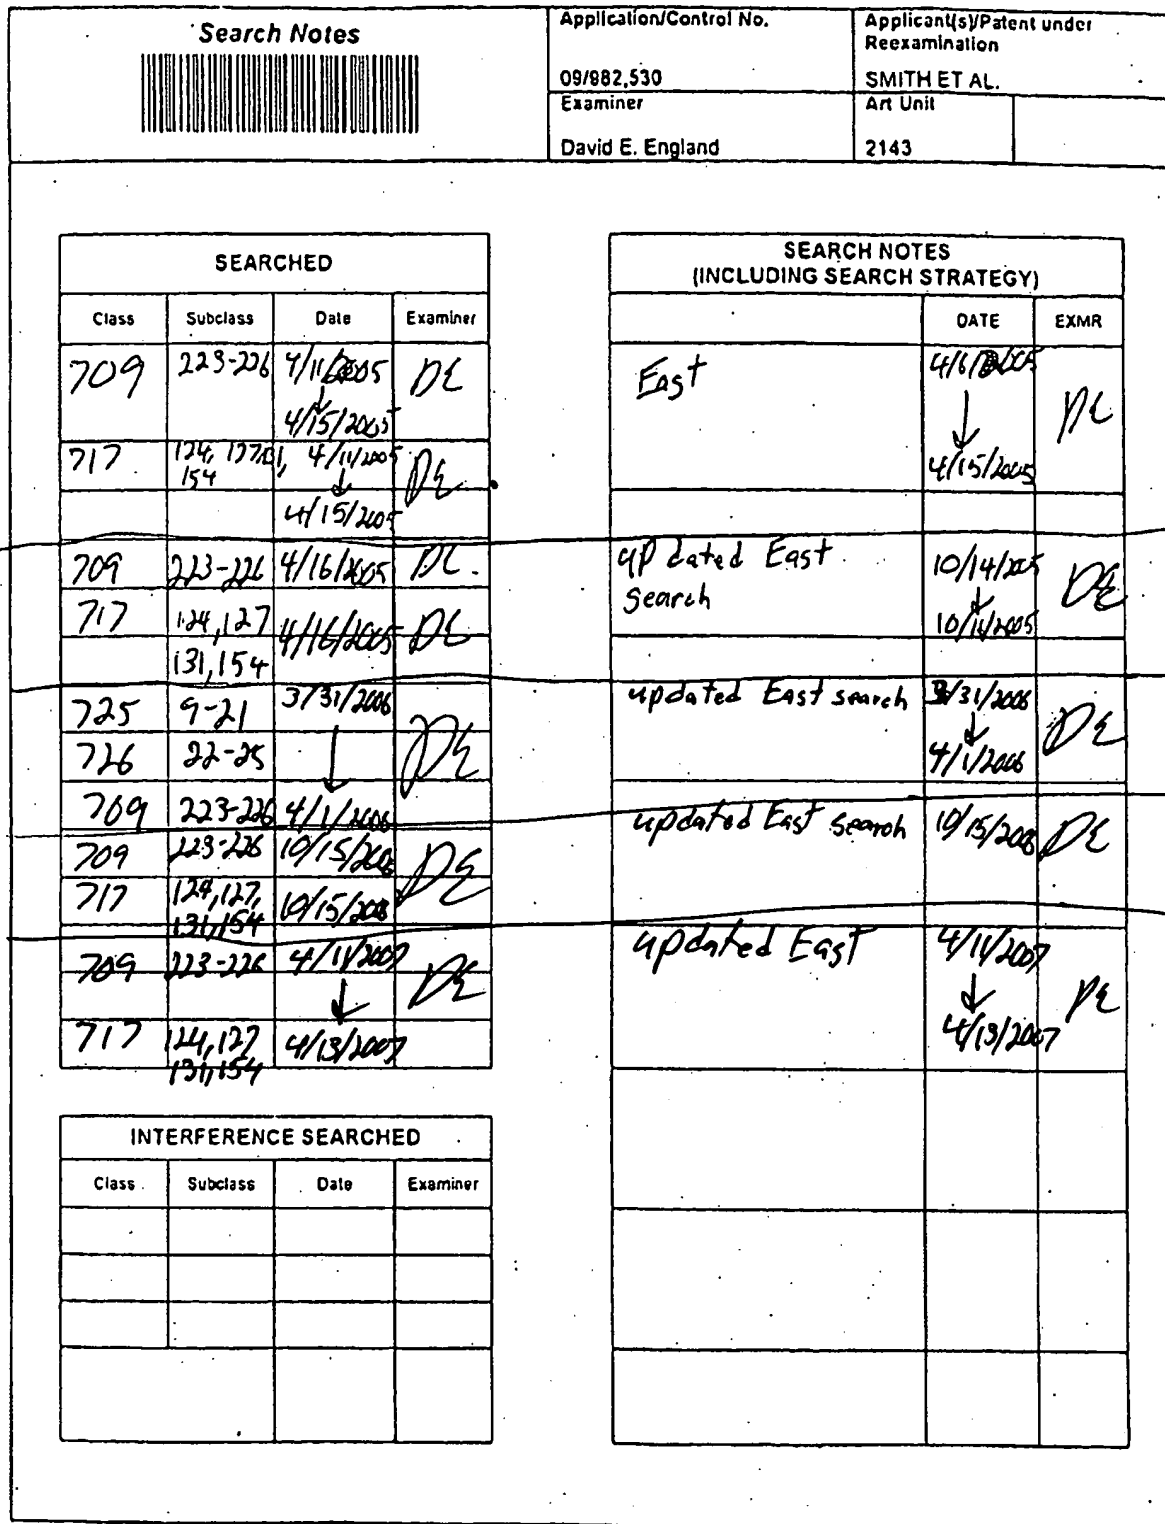 Search Notes
Application/Control No.
09/882,530
Applicant(s)/Patent under
Reexamination
SMITH ET AL.
Examiner
David E. England
Art Unit
2143
SEARCHED
Class Subclass Date Examiner
709 223-226 4/11/2005 DE
4/15/2005
717 124, 127, 4/11/2005 DE
154
4/15/2005
709 223-226 4/16/2005 DE
717 124,127 4/16/2005 DE
131,154
725 9-21 3/31/2006
726 22-25 DE
709 223-226 4/1/2006
709 223-226 10/15/2006 DE
717 124,127, 10/15/2006
131,154
709 223-226 4/11/2007 DE
717 124,127 4/13/2007
131,154
INTERFERENCE SEARCHED
Class Subclass Date Examiner
SEARCH NOTES
(INCLUDING SEARCH STRATEGY)
DATE EXMR
East DE
4/15/2005
updated East 10/14/2005 DE
Search
updated East search 3/31/2006 DE
4/1/2006
updated East search 10/15/2006 DE
updated East 4/11/2007 DE
4/13/2007